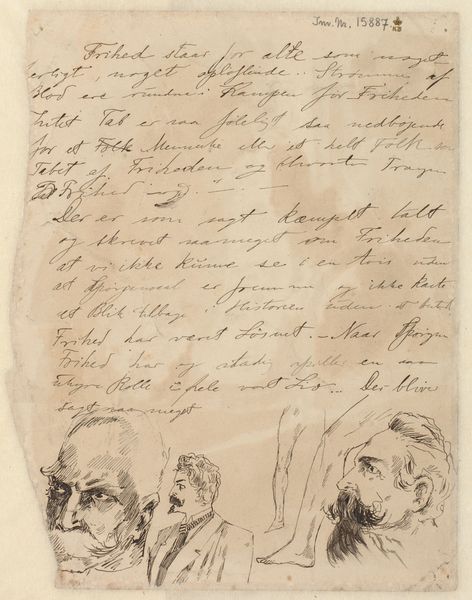 Inv. Nr. 15887
Frihed staar for alle som noget
herligt, noget opløftende. Strømme af
Blod ere rundne i Kampen for Friheden
Intet Tab er saa føleligt saa nedbøjende
for et Menneske eller et helt Folk som
Tabet af Friheden og Trangen
Frihed
Der er som sagt kæmpet talt
og skrevet saameget om Friheden
at vi ikke kunne se i en Avis uden
at er fremme og ikke kaste
et Blik tilbage i Historien uden at
Frihed har været Løsnet. - Naar
Frihed har og stadig spiller en saa
uhyre Rolle i hele vort Liv... Der bliver
sagt saa meget